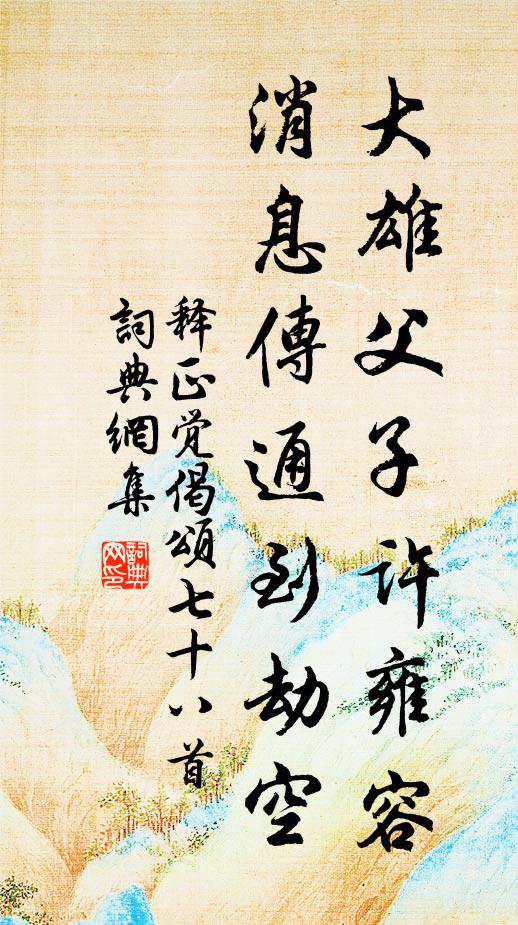 大雄父子许雍容
消息傳通到劫空
释正觉偈頌七十八首
詞典網集
詞典网印